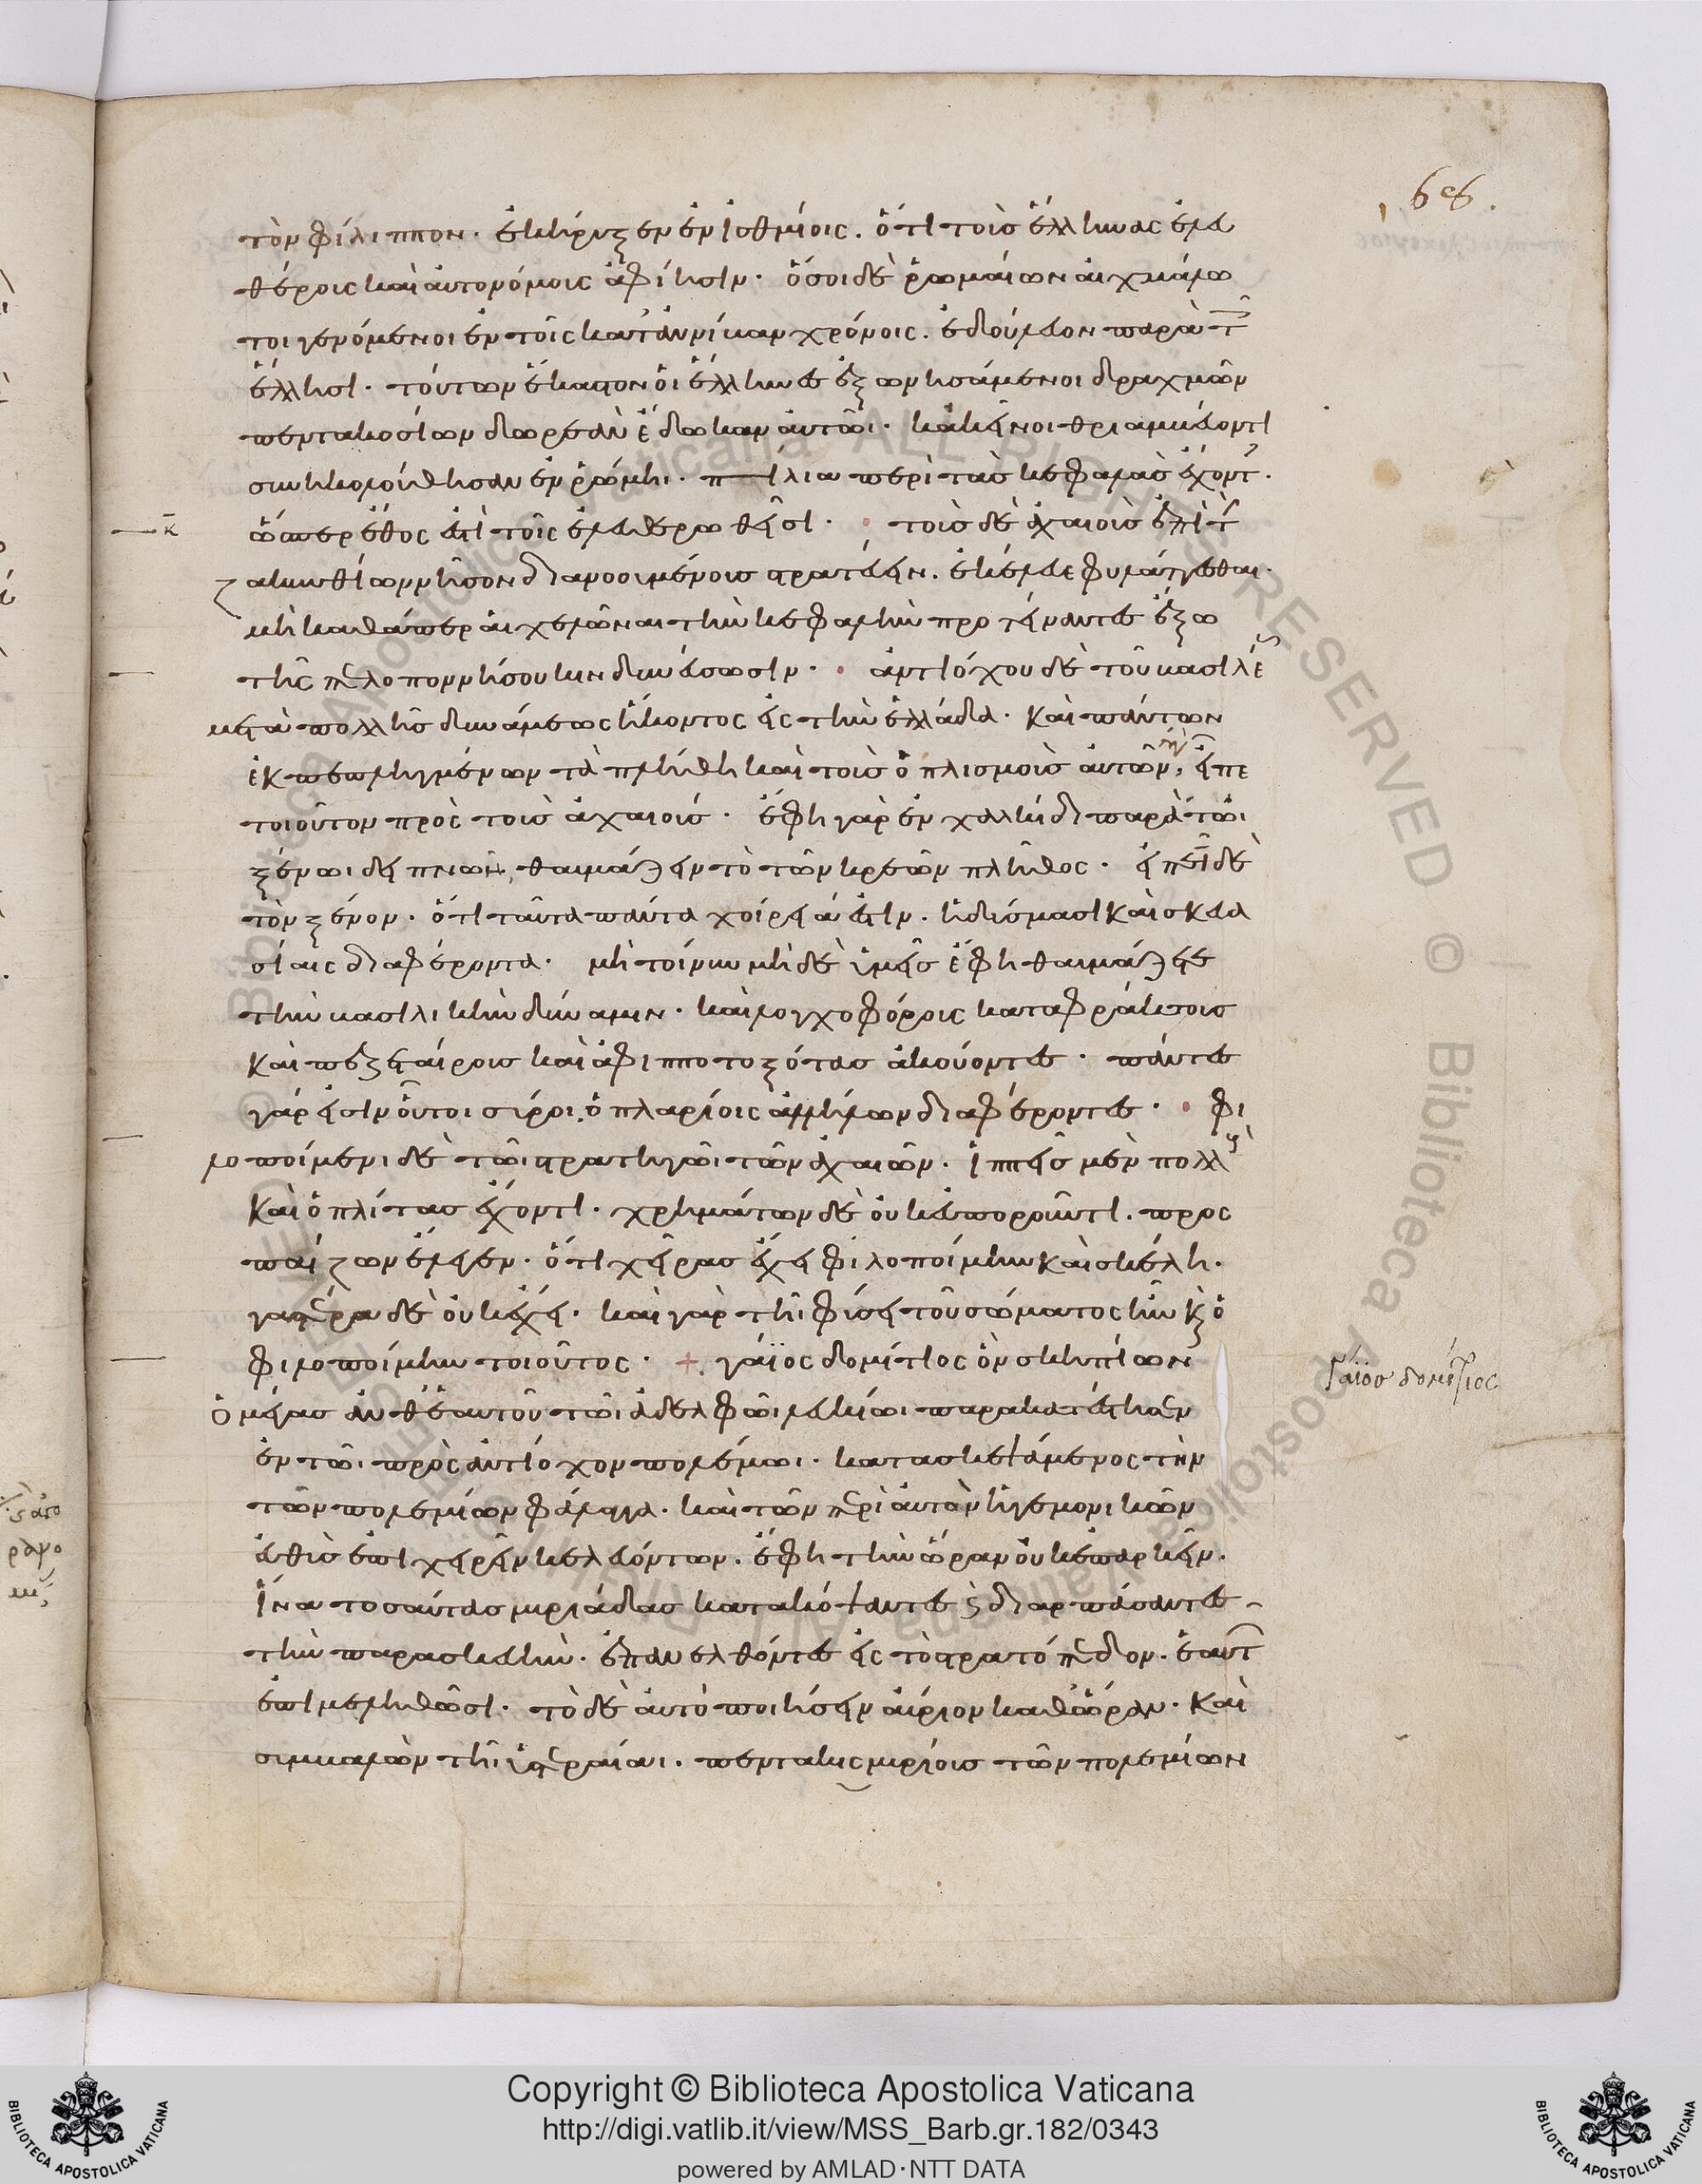 68.
τὸν φίλιππον· ἐκήρυξεν ἐν ἰσθμίοις. ὅτι τοὺς ἕλληνας ἐλευ
θέρους καὶ αὐτονόμους ἀφίησιν· ὅσοι δὲ ῥωμαίων αἰχμάλω
τοι γενόμενοι ἐν τοῖς κατ' ἀννίβαν χρόνοις. ἐδούλευον παρὰ τ
ἕλλησι. τούτων ἕκαστον οἱ ἕλληνες ἐξωνησάμενοι δραχμῶν
πεντακοσίων δωρεὰν ἔδωκαν αὐτῶι· κἀκεῖνοι θριαμβεύοντι
συνηκολούθησαν ἐν ῥώμηι. πιλία περὶ τὰς κεφαλὰς ἔχοντ.
κ ὥσπερ ἔθος ἐστὶ τοῖς ἐλευθερωθεῖσι· τοὺς δὲ ἀχαιοὺς ἐπὶ τ
ζακυνθίων νῆσον διανοουμένους στρατεύειν. ἐκέλευε φυλάττεσθαι.
μὴ καθάπερ αἱ χελῶναι τὴν κεφαλὴν προτείναντες ἔξω
τῆς πελοποννήσου κινδυνεύσωσιν· ἀντιόχου δὲ τοῦ βασιλέ
μετὰ πολλῆς δυνάμεως ἥκοντος εἰς τὴν ἑλλάδα. καὶ πάντων
ἐκπεπληγμένων τὰ πλήθη καὶ τοὺς ὁπλισμοὺς αὐτῶν, εἶπε
τοιοῦτον πρὸς τοὺς ἀχαιούς. ἔφη γὰρ ἐν χαλκίδι παρὰ τῶι
ξένωι δειπνῶν, θαυμάζειν τὸ τῶν κρεῶν πλῆθος. εἰπεῖν δὲ
τὸν ξένον. ὅτι ταῦτα πάντα χοίρειά ἐστιν. ἡδύσμασι καὶ σκευα
σίαις διαφέροντα. μὴ τοίνυν μὴδὲ ὑμεῖς ἔφη θαυμάζετε
τὴν βασιλικὴν δύναμιν. καὶ λογχοφόρους καταφράκτους
καὶ πεζεταίρους καὶ ἀφιπποτοξότας ἀκούοντες. πάντες
γάρ εἰσιν οὗτοι σύροι. ὁπλαρίοις ἀλλήλων διαφέροντες. φι
λοποίμενι δὲ τῶι στρατηγῶι τῶν ἀχαιῶν. ἱππεῖς μὲν πολλ
καὶ ὁπλίτας ἔχοντι. χρημάτων δὲ οὐκ εὐποροῦντι. προς
παίζων ἔλεγεν. ὅτι χεῖρας ἔχει φιλοποίμην καὶ σκέλη.
γαστέρα δὲ οὐκ ἔχει. καὶ γὰρ τῆι φύσει τοῦ σώματος ἦν κ ὁ
φιλοποίμην τοιοῦτος. γάϊος δομίτιος ὃν σκηπίων
Γάϊοσ δομίτιος
ὁ μέγας ἀνθ' ἑαυτοῦ τῶι ἀδελφῶι λευκίωι παρακατέστησεν
ἐν τῶι πρὸς ἀντίοχον πολέμωι. κατασκεψάμενος τὴν
τῶν πολεμίων φάλαγγα. καὶ τῶν περὶ αὐτὸν ἡγεμονικῶν
εὐθὺς ἐπιχειρεῖν κελευόντων. ἔφη τὴν ὥραν οὐκ ἐπαρκεῖν.
ἵνα τοσαύτας μυριάδας κατακόψαντες διαρπάσαντες
τὴν παρασκευήν. ἐπανελθόντες εἰς τὸ στρατόπεδον. ἑαυτ
ἐπιμεληθῶσι. τὸ δὲ αὐτὸ ποιήσειν αὔριον καθ' ὥραν. καὶ
συμβαλὼν τῆι ὑστεραίαι. πεντακισμυρίους τῶν πολεμίων
Copyright © Biblioteca Apostolica Vaticana
http://digi.vatlib.it/view/MSS_Barb.gr.182/0343
powered by AMLAD·NTT DATA